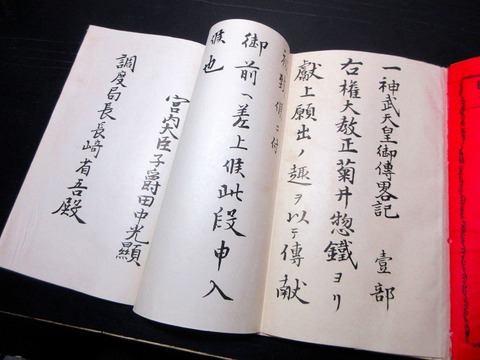 一神武天皇御傳畧記　壹部
右権大教正菊井惣鐵ヨリ
獻上願出ノ趣ヲ以テ傳献
到候ニ付
御前ヘ差上候此段申入
候也
宮内大臣子爵田中光顯
調度局長長﨑省吾殿